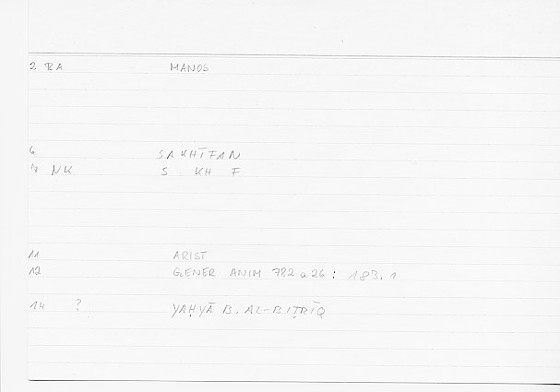 2 RA MANOS
6 SAKHĪFAN
7 NK S KH F
11 ARIST
12 GENER ANIM 782 a 26 : 183.1
14 ? YAḤYĀ B. AL-BIṬRĪQ